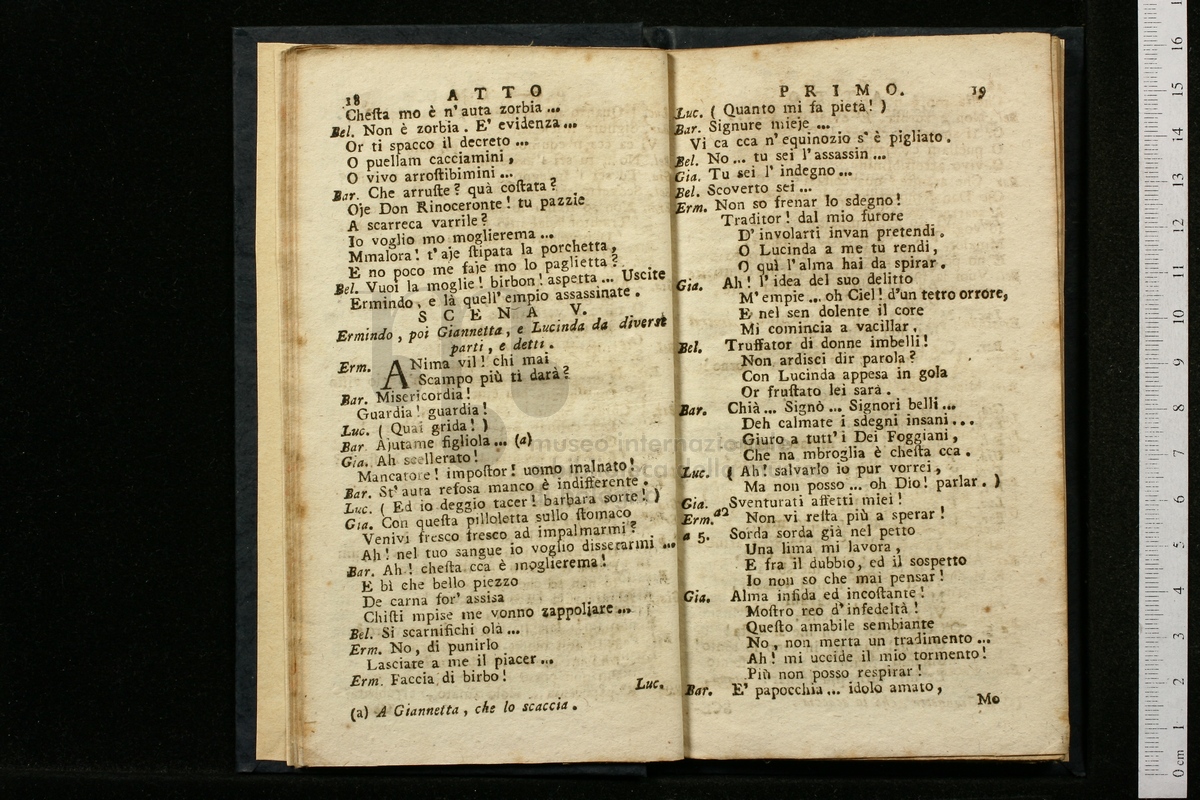 18 ATTO
Chesta mo è n' auta zorbia ...
Bel. Non è zorbia. E' evidenza ...
Or ti spacco il decreto ...
O puellam cacciamini,
O vivo arrostibimini ...
Bar. Che arruste? quà costata?
Oje Don Rinoceronte! tu pazzie
A scarreca varrile?
Io voglio mo moglierema ...
Mmalora! t' aje stipata la porchetta,
E no poco me faje mo lo paglietta?
Bel. Vuoi la moglie! birbon! aspetta ... Uscite
Ermindo, e là quell' empio assassinate.
SCENA V.
Ermindo, poi Giannetta, e Lucinda da diverse
parti, e detti.
Erm. ANima vil! chi mai
Scampo più ti darà?
Bar. Misericordia!
Guardia! guardia!
Luc. ( Quai grida! )
Bar. Ajutame figliola ... (a)
Gia. Ah scellerato!
Mancatore! impostor! uomo malnato!
Bar. St' auta refosa manco è indifferente.
Luc. ( Ed io deggio tacer! barbara sorte! )
Gia. Con questa pilloletta sullo stomaco
Venivi fresco fresco ad impalmarmi?
Ah! nel tuo sangue io voglio dissetarmi ...
Bar. Ah! chesta cca è moglierema!
E bì che bello piezzo
De carna for' assisa
Chisti mpise me vonno zappoliare ...
Bel. Si scarnifichi olà ...
Erm. No, di punirlo
Lasciate a me il piacer ...
Erm. Faccia di birbo!
Luc.
(a) A Giannetta, che lo scaccia.
PRIMO. 19
Luc. ( Quanto mi fa pietà! )
Bar. Signure mieje ...
Vi ca cca n' equinozio s' è pigliato.
Bel. No ... tu sei l' assassin ...
Gia. Tu sei l' indegno ...
Bel. Scoverto sei ...
Erm. Non so frenar lo sdegno!
Traditor! dal mio furore
D' involarti invan pretendi.
O Lucinda a me tu rendi,
O quì l' alma hai da spirar.
Gia. Ah! l' idea del suo delitto
M' empie ... oh Ciel! d'un tetro orrore,
E nel sen dolente il core
Mi comincia a vacillar.
Bel. Truffator di donne imbelli!
Non ardisci dir parola?
Con Lucinda appesa in gola
Or frustato lei sarà.
Bar. Chià ... Signò ... Signori belli ...
Deh calmate i sdegni insani ...
Giuro a tutt' i Dei Foggiani,
Che na mbroglia è chesta cca.
Luc. ( Ah! salvarlo io pur vorrei,
Ma non posso ... oh Dio! parlar. )
Gia. Sventurati affetti miei!
Erm. a2 Non vi resta più a sperar!
a 5. Sorda sorda già nel petto
Una lima mi lavora,
E fra il dubbio, ed il sospetto
Io non so che mai pensar!
Gia. Alma infida ed incostante!
Mostro reo d' infedeltà!
Questo amabile sembiante
No, non merta un tradimento ...
Ah! mi uccide il mio tormento!
Più non posso respirar!
Bar. E' papocchia ... idolo amato,
Mo
museo internazionale